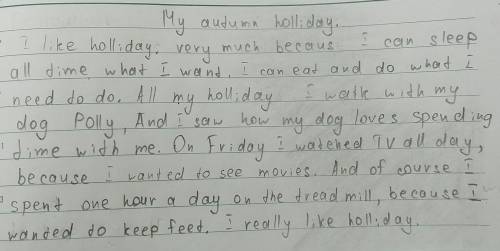 My autumn holliday.
I like holliday. very much becaus I can sleep
all dime what I want. I can eat and do what I
need do do. All my holliday I walk with my
dog Polly, And I saw how my dog loves spending
dime with me. On Friday I watched TV all day,
because I wanted to see movies. And of course I
spent one hour a day on the tread mill, because I
wanded do keep feed. I really like holliday.